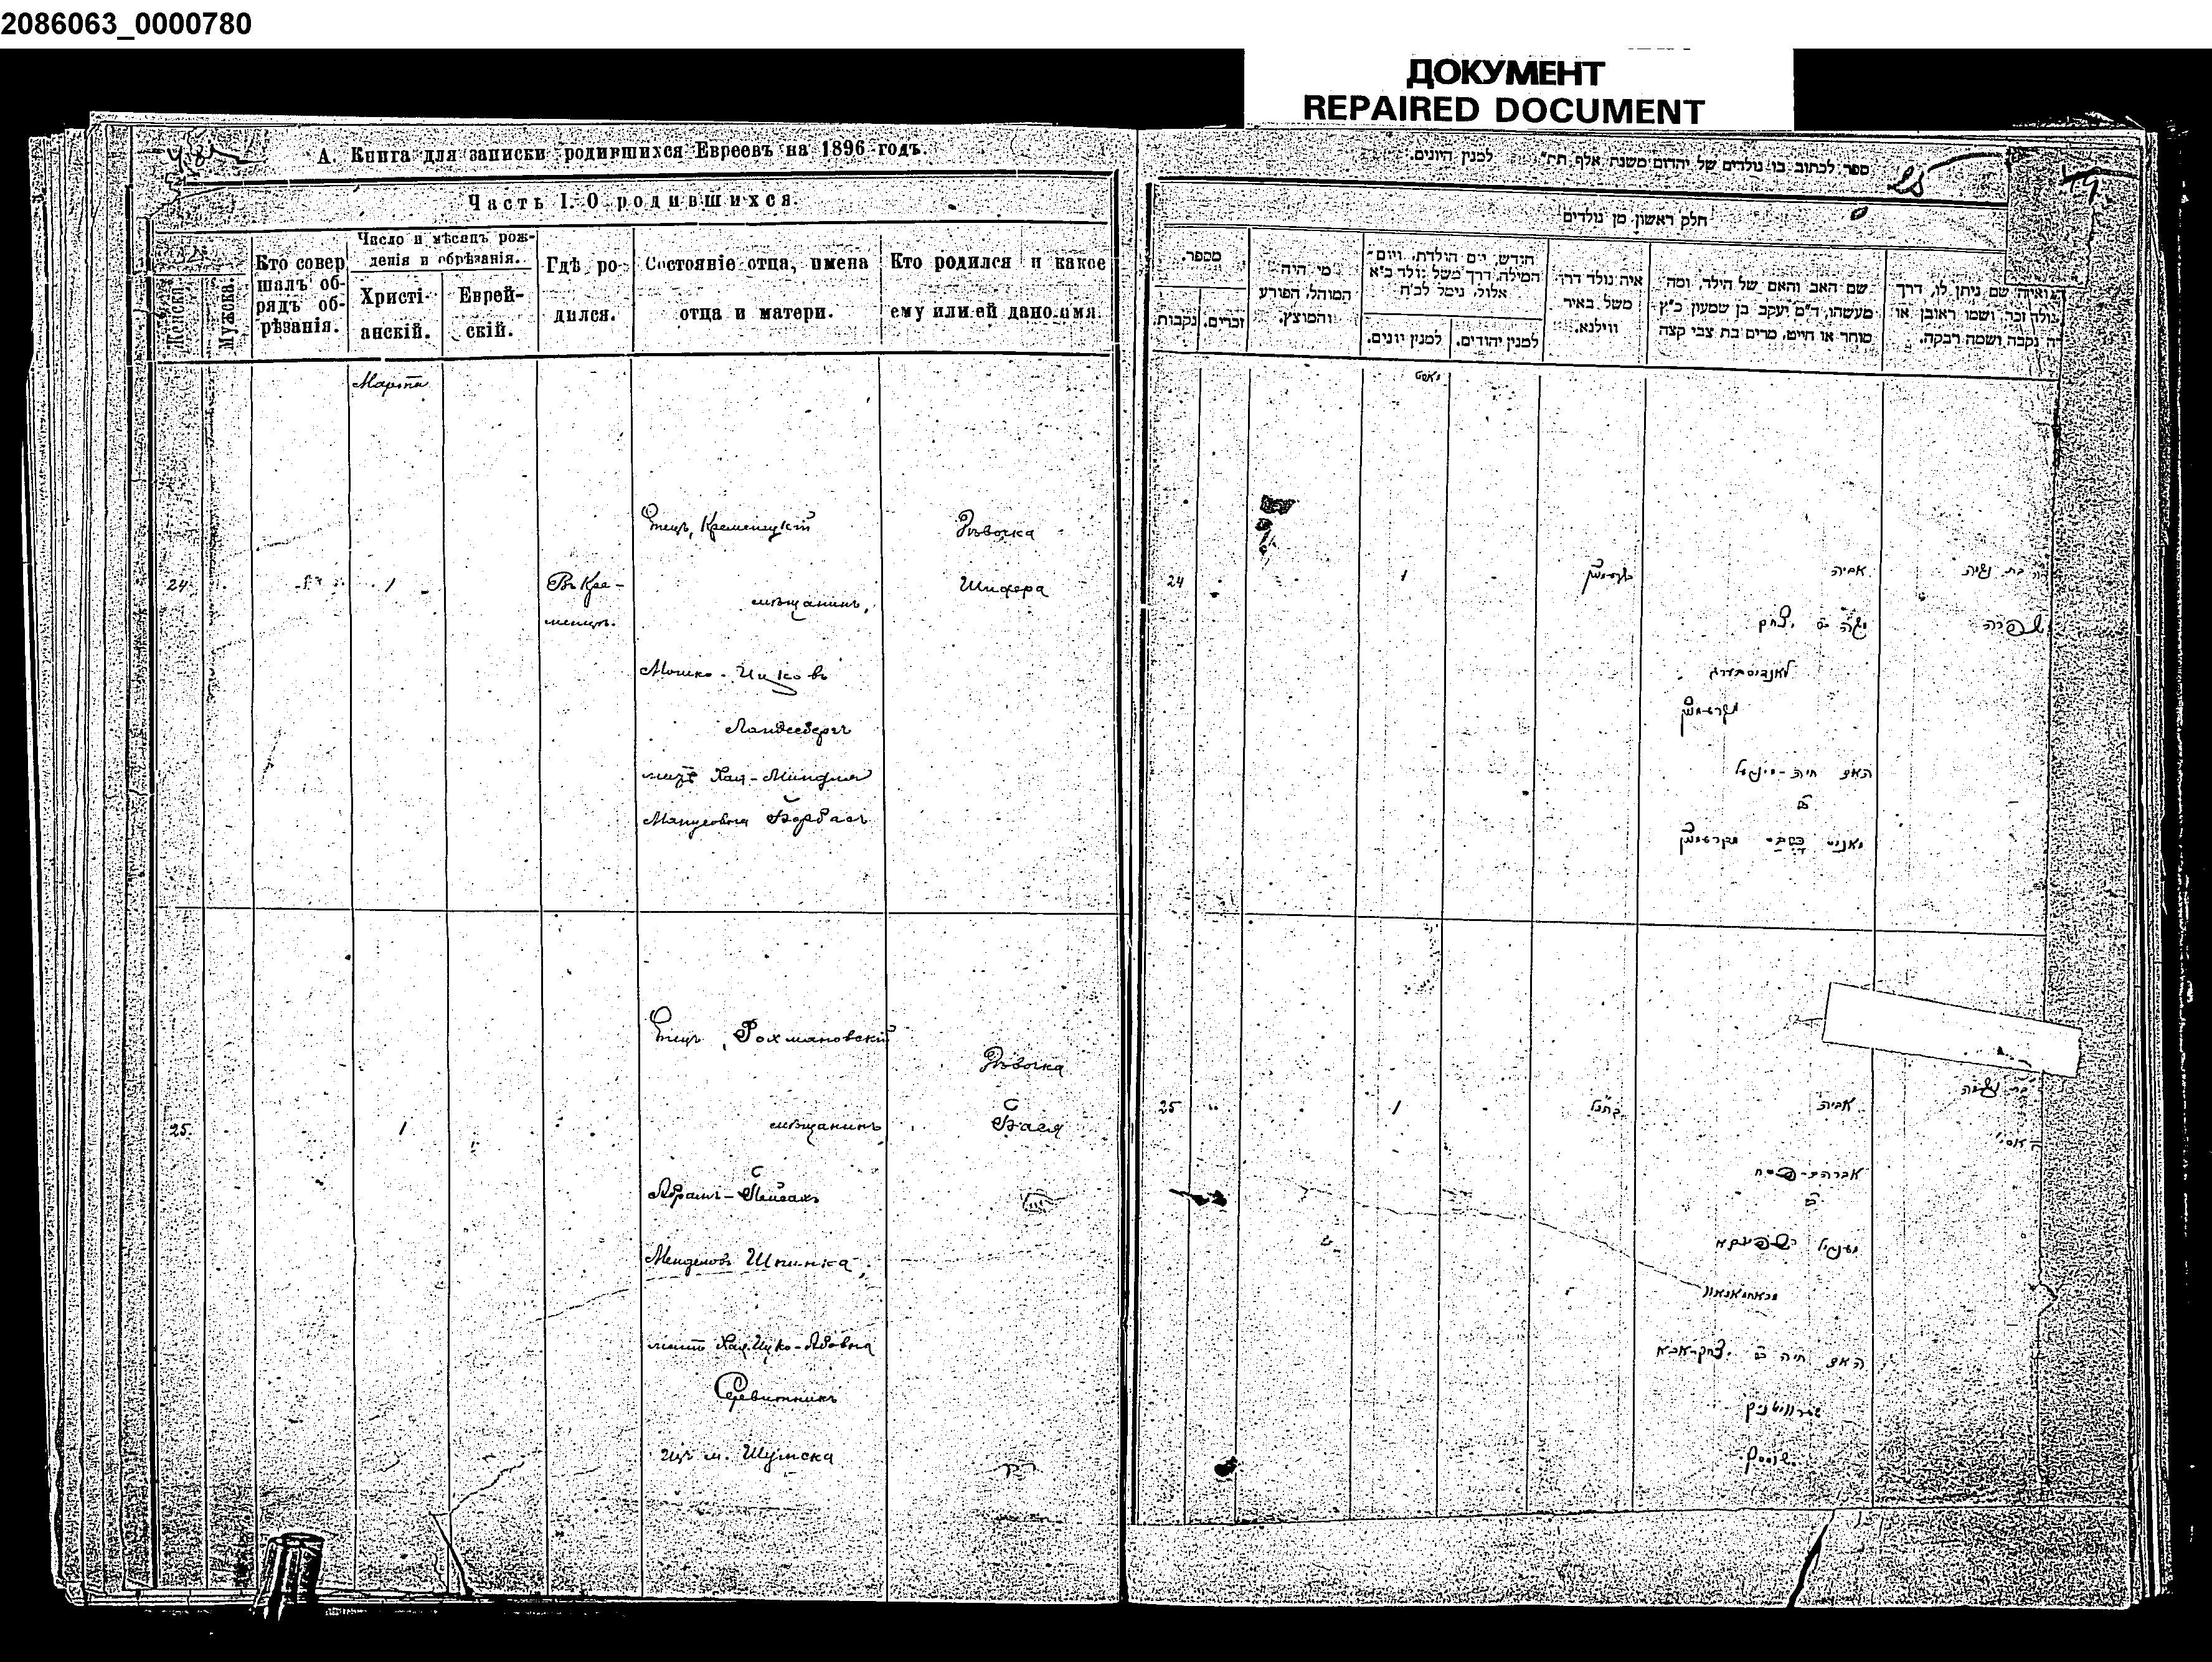 2086063_0000780
ДОКУМЕНТ
REPAIRED DOCUMENT
А. Книга для записки родившихся Евреевъ на 1896 годъ.
Часть I. О родившихся.
Женска.
Мужска.
Кто совер
шалъ об-
рядъ об-
рѣзанія.
Число и мѣсяцъ рож-
денія и обрѣзанія.
Христі-
анскій.
Еврей-
скій.
Гдѣ ро-
дился.
Состояніе отца, имена
отца и матери.
Кто родился и какое
ему или ей дано имя.
Марта
24
1
Въ Кре-
менцѣ.
Отецъ, Кременецкій
мѣщанинъ,
Мошко-Ицковъ
Ландсбергъ
мать Хая-Миндля
Дѣвочка
Шифра
25
1
Отецъ, Рохмановскій
мѣщанинъ
Абрамъ-Пейсахъ
Менделовъ Шпинка,
мать Хая Ицко-Абовна
изъ м. Шумска
Дѣвочка
Бася
ספר לכתוב בו נולדים של יהדום משנת אלף תת״ למנין היונים.
25
חלק ראשון מן נולדים
מספר.
נקבות.
זכרים.
מי היה
המוהל, הפורע
והמוצץ.
חודש, יום הולדת, ויום
המילה, דרך משל נולד כ״א
אלול, נימל לכ״ח
למנין יונים.
למנין יהודים.
איה נולד דרך
משל באיר
ווילנא.
שם האב והאם של הילד, ומה
מעשהו, ד״ם יעקב בן שמעון כ״ץ
סוחר או חייט, מרים בת צבי קצה
שם ניתן לו, דרך
נולד זכר, ושמו ראובן או
נקבה ושמה רבקה.
מארט
24
1
אביה
משה ב״ר יצחק
לאנדסבערג
האם חיה-מינדיל
שפרה
25
1
אביה
אברהם-פסח
מענדיל שפינקא
האם חיה ב״ר יצחק-אבא
שומסק